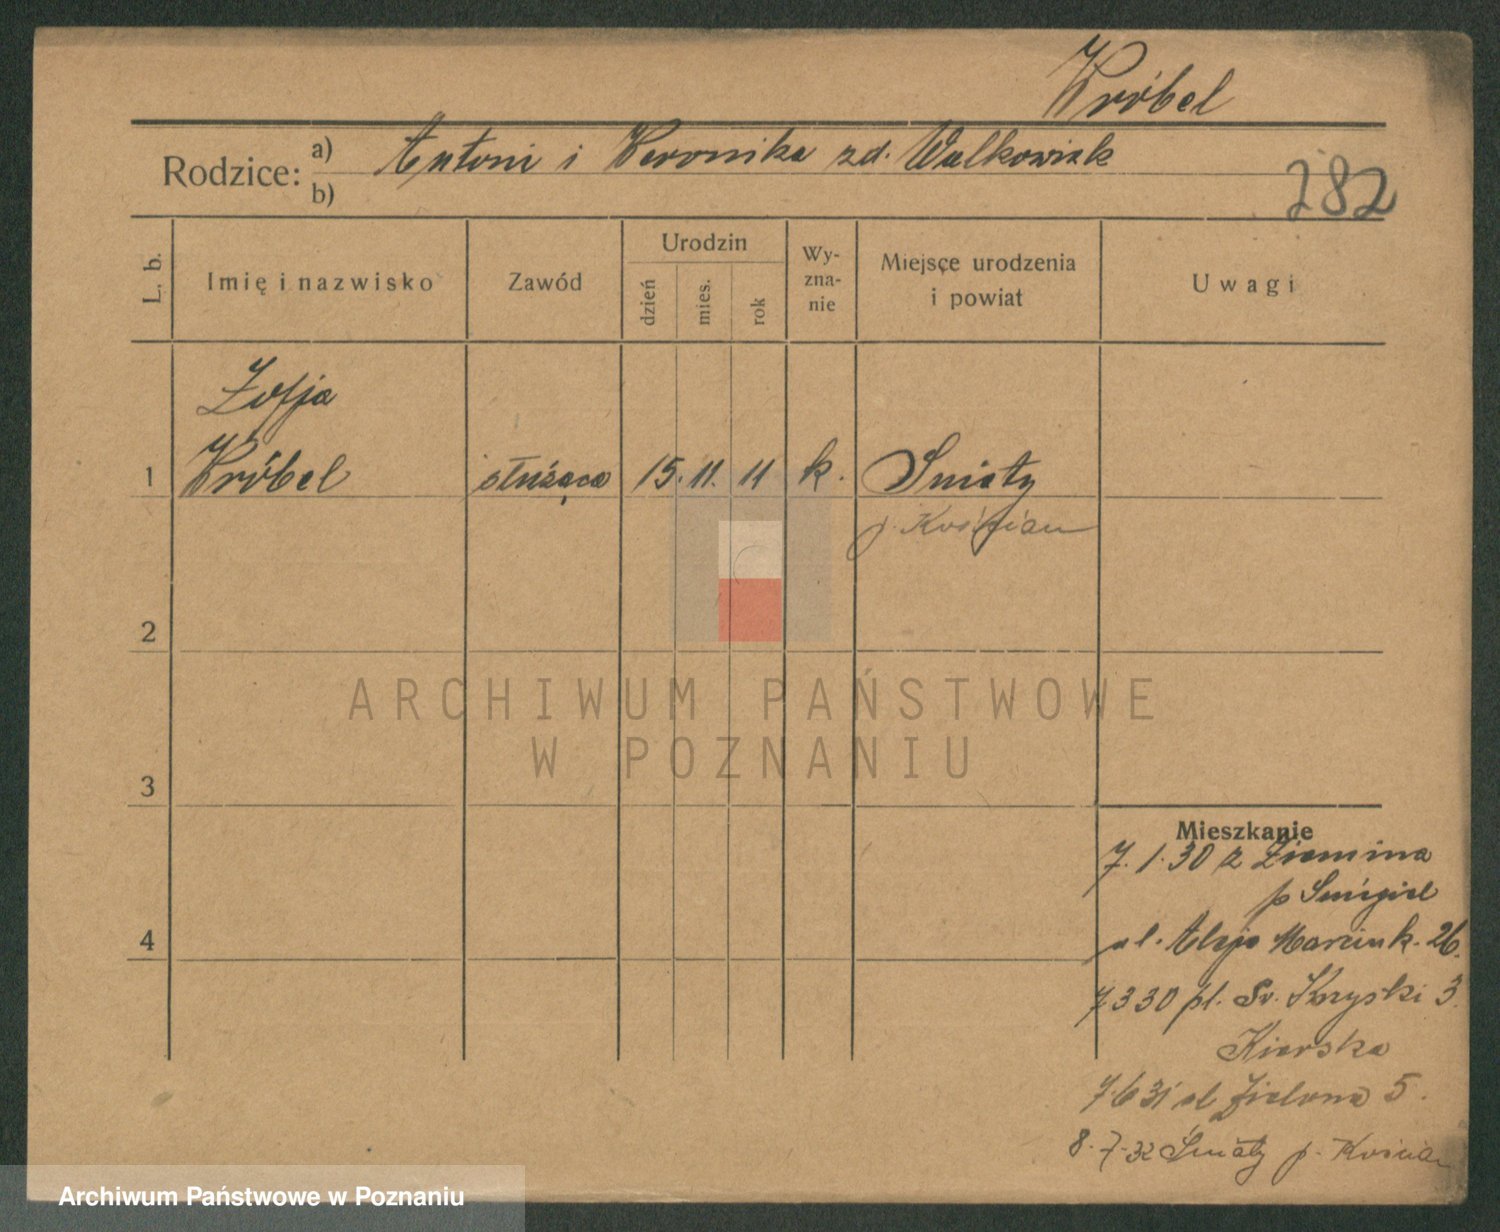 Wróbel
Rodzice: a) Antoni i Weronika zd. Walkowiak
b)
282
L. b.
Imię i nazwisko
Zawód
Urodzin
dzień
mies.
rok
Wy-
zna-
nie
Miejsce urodzenia
i powiat
Uwagi
Zofja
1 Wróbel służąca 15. 11. 11 k. Śniaty
p. Kościan
2
3
4
Mieszkanie
7. 1. 30 z Ziemina
p Śmigiel
ul. Aleje Marcink. 26.
7 3 30 pl. Św. Krzyski 3.
7. 6 31 ul Zielona 5.
8. 7. 32 Śniaty p. Kościan
ARCHIWUM PAŃSTWOWE
W POZNANIU
Archiwum Państwowe w Poznaniu